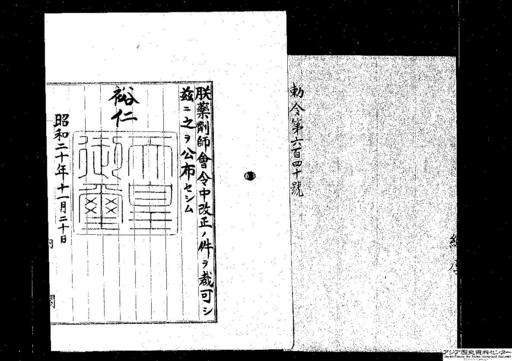 勅令第六百四十號
朕藥劑師會令中改正ノ件ヲ裁可シ
茲ニ之ヲ公布セシム
裕仁
天皇
御璽
昭和二十年十一月二十日
内閣
アジア歴史資料センター